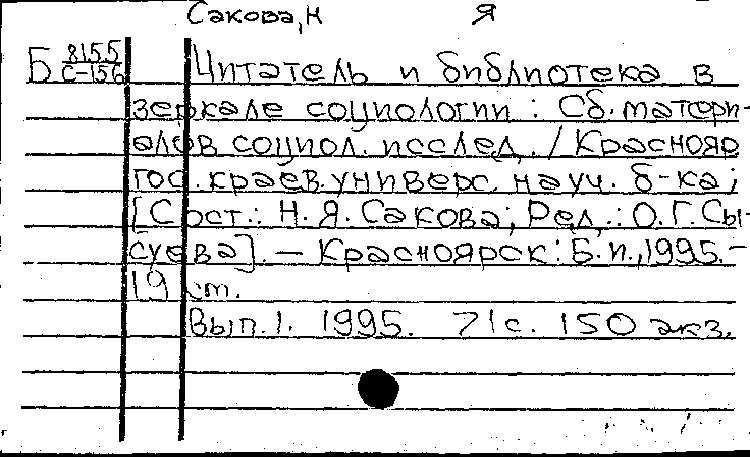 Сакова, Н Я
Б 8155
С-156
Читатель и библиотека в
зеркале социологии : Сб. матери-
алов социол. исслед. / Краснояр
гос. краев. универс. науч. б-ка;
[Сост.: Н. Я. Сакова; Ред.: О. Г. Сы-
суева]. — Красноярск: Б. и., 1995.-
19 см.
Вып. 1. 1995. 71с. 150 экз.